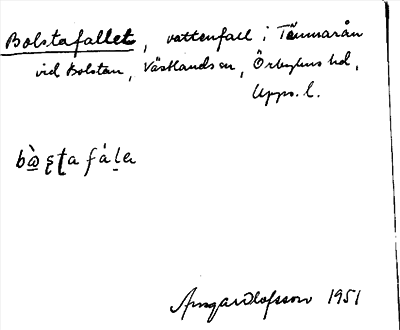 Bolstafallet, vattenfall i Tämnarån
vid Bolstan, Västlands sn, Örbyhus hd,
Upps. l.
bò̲ʂʈa fáḷa
Amgard Olofsson 1951